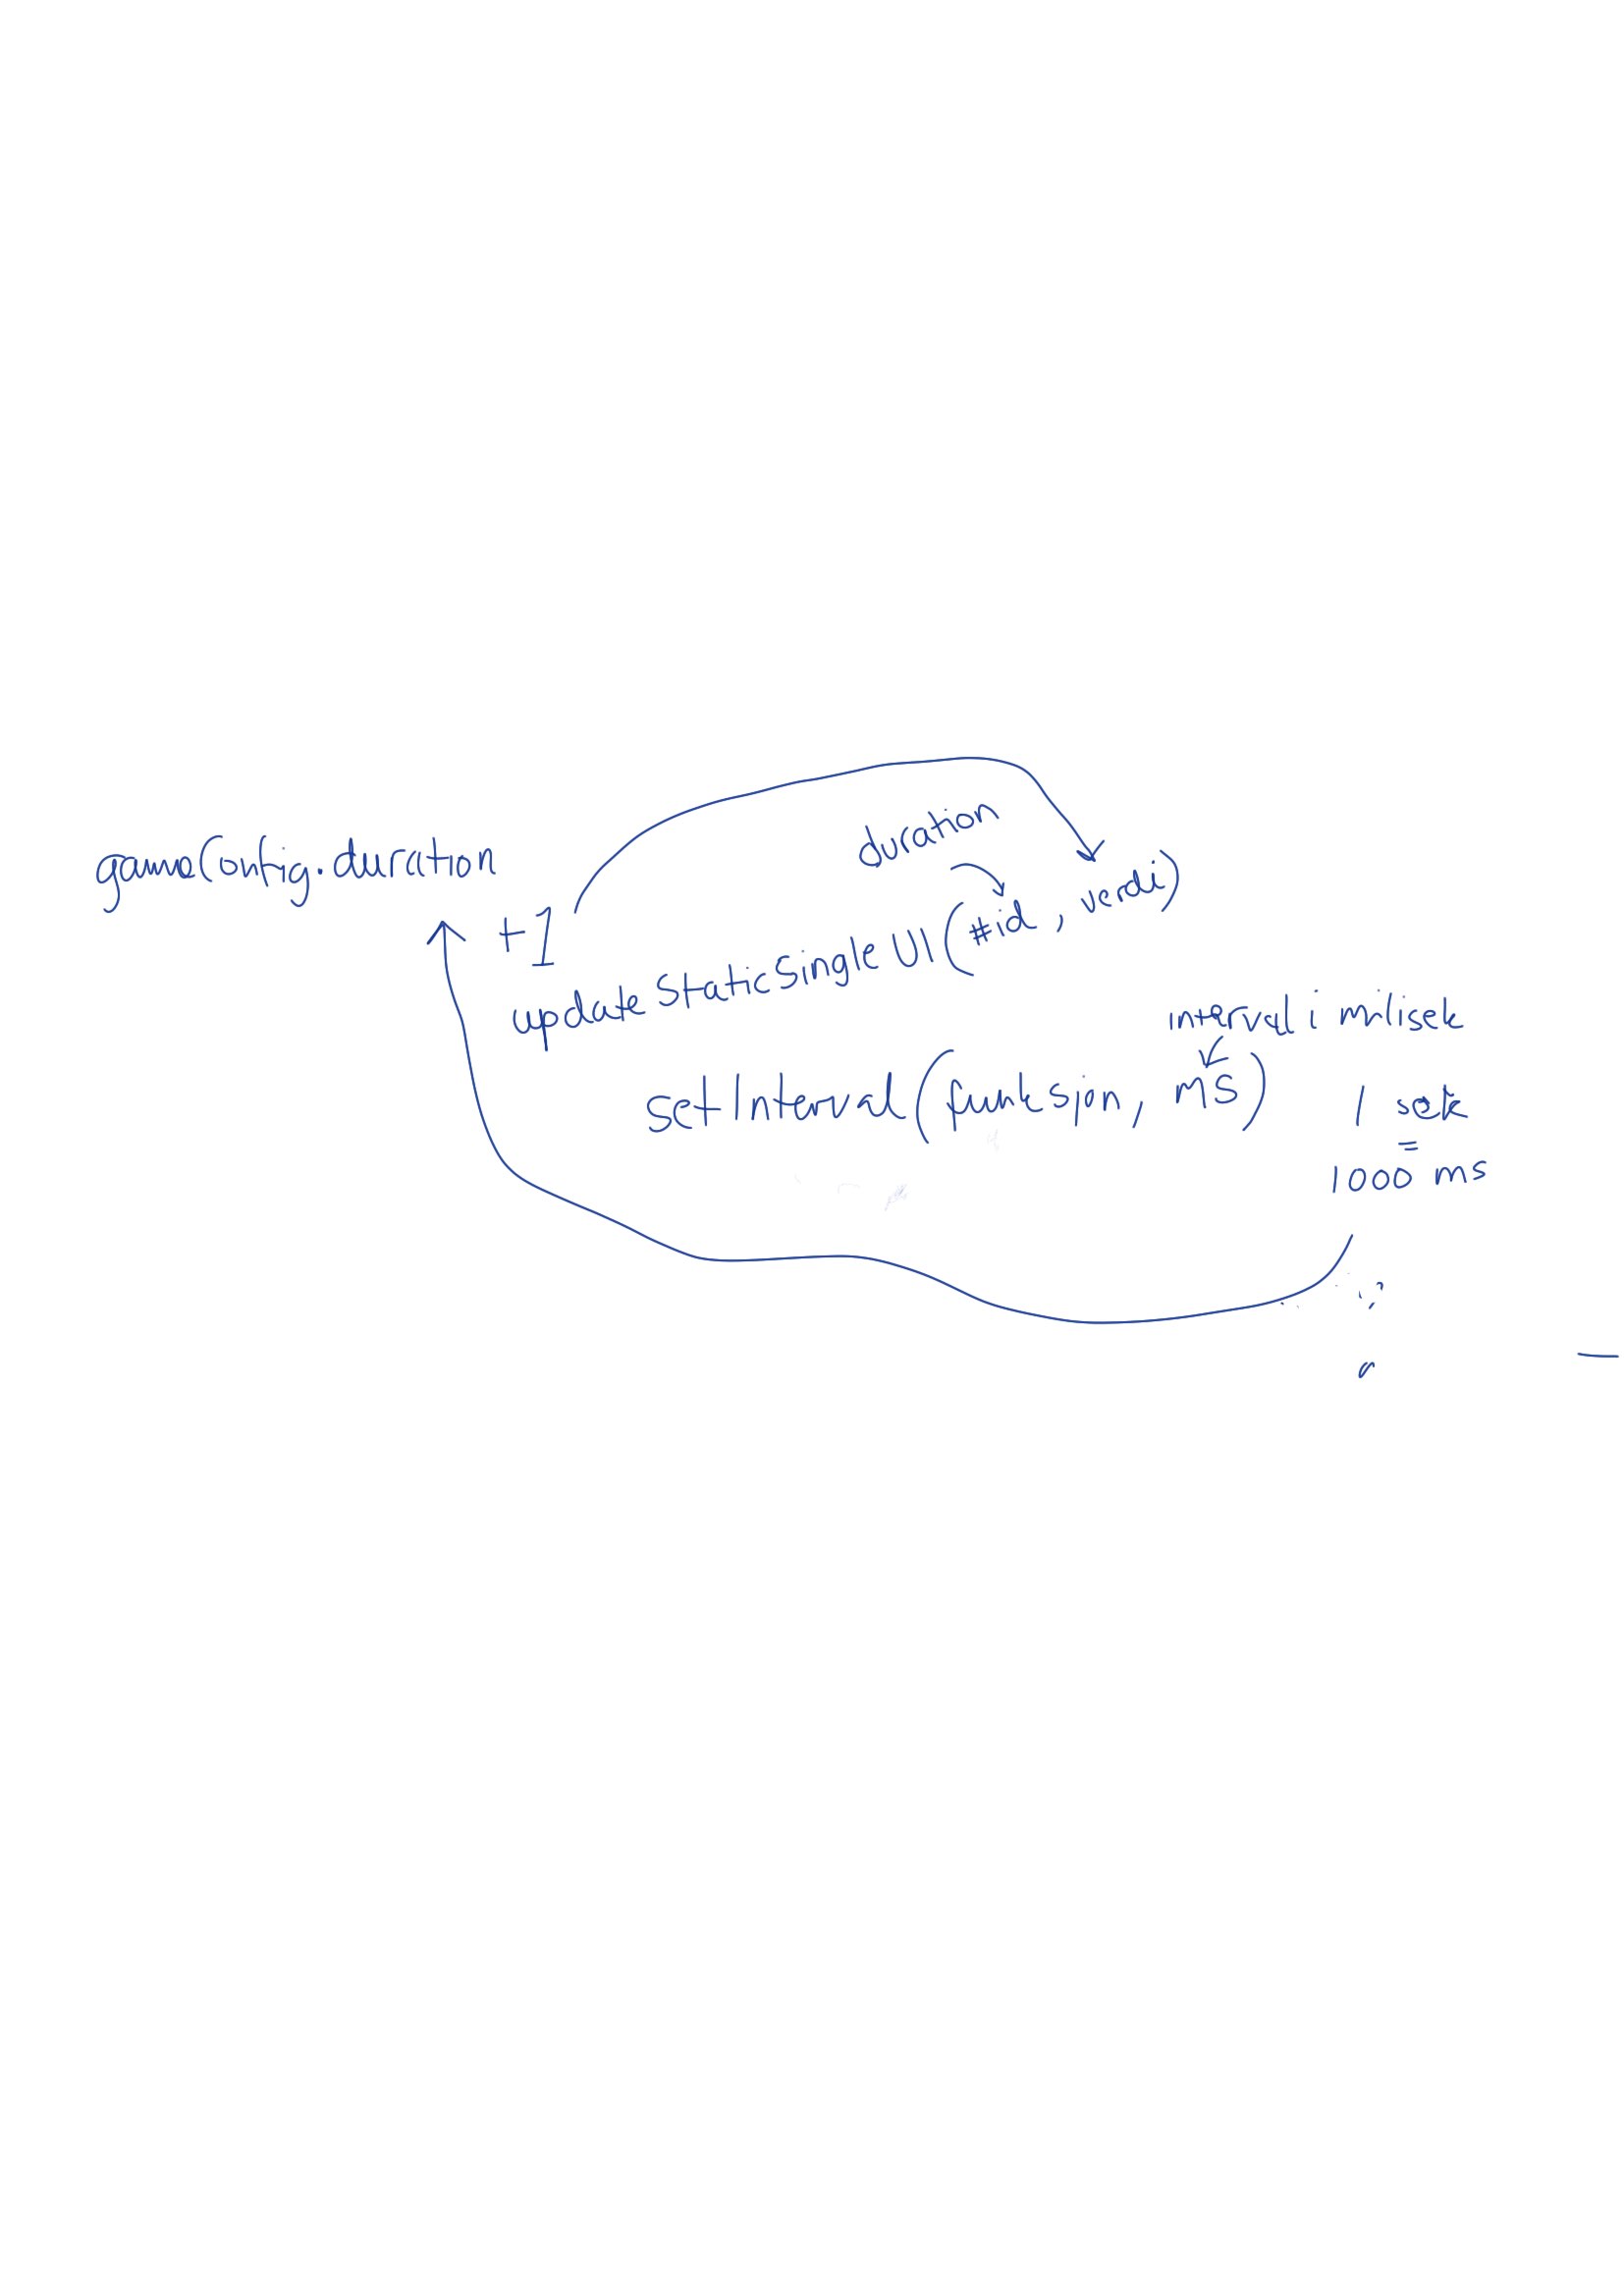 duration
gameConfig.duration
+1
updateStaticSingleUI(#id, verdi)
interval i milisek
setInterval(funksjon, ms)
1 sek
=
1000 ms